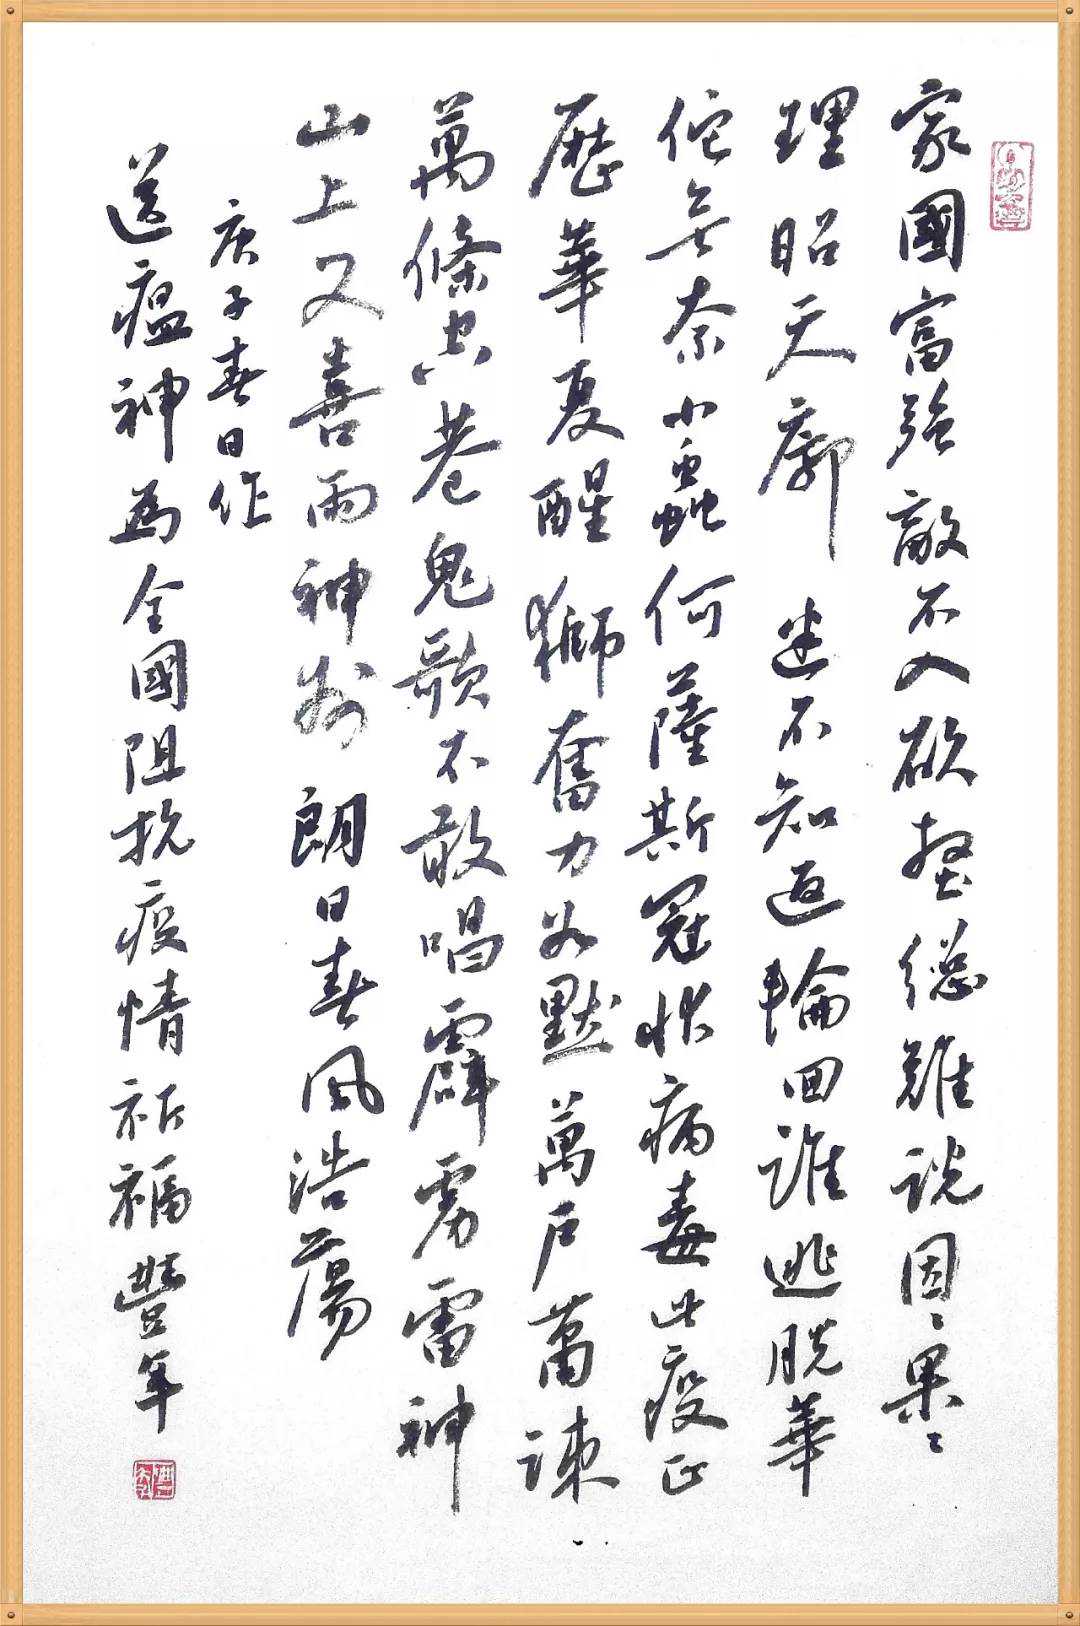 家國富強敵不入欲整總難說因〻果〻
理昭天廓迷不知返輪回誰逃脫華
佗無奈小蟲何薩斯冠狀病毒此疫正
歷華夏醒獅奮力如默萬戶蕭疎
萬條空巷鬼歌不敢唱霹靂雷神
山上又喜雨神州朗日春風浩蕩
庚子春日作
送瘟神為全國阻抗疫情祈福豐年